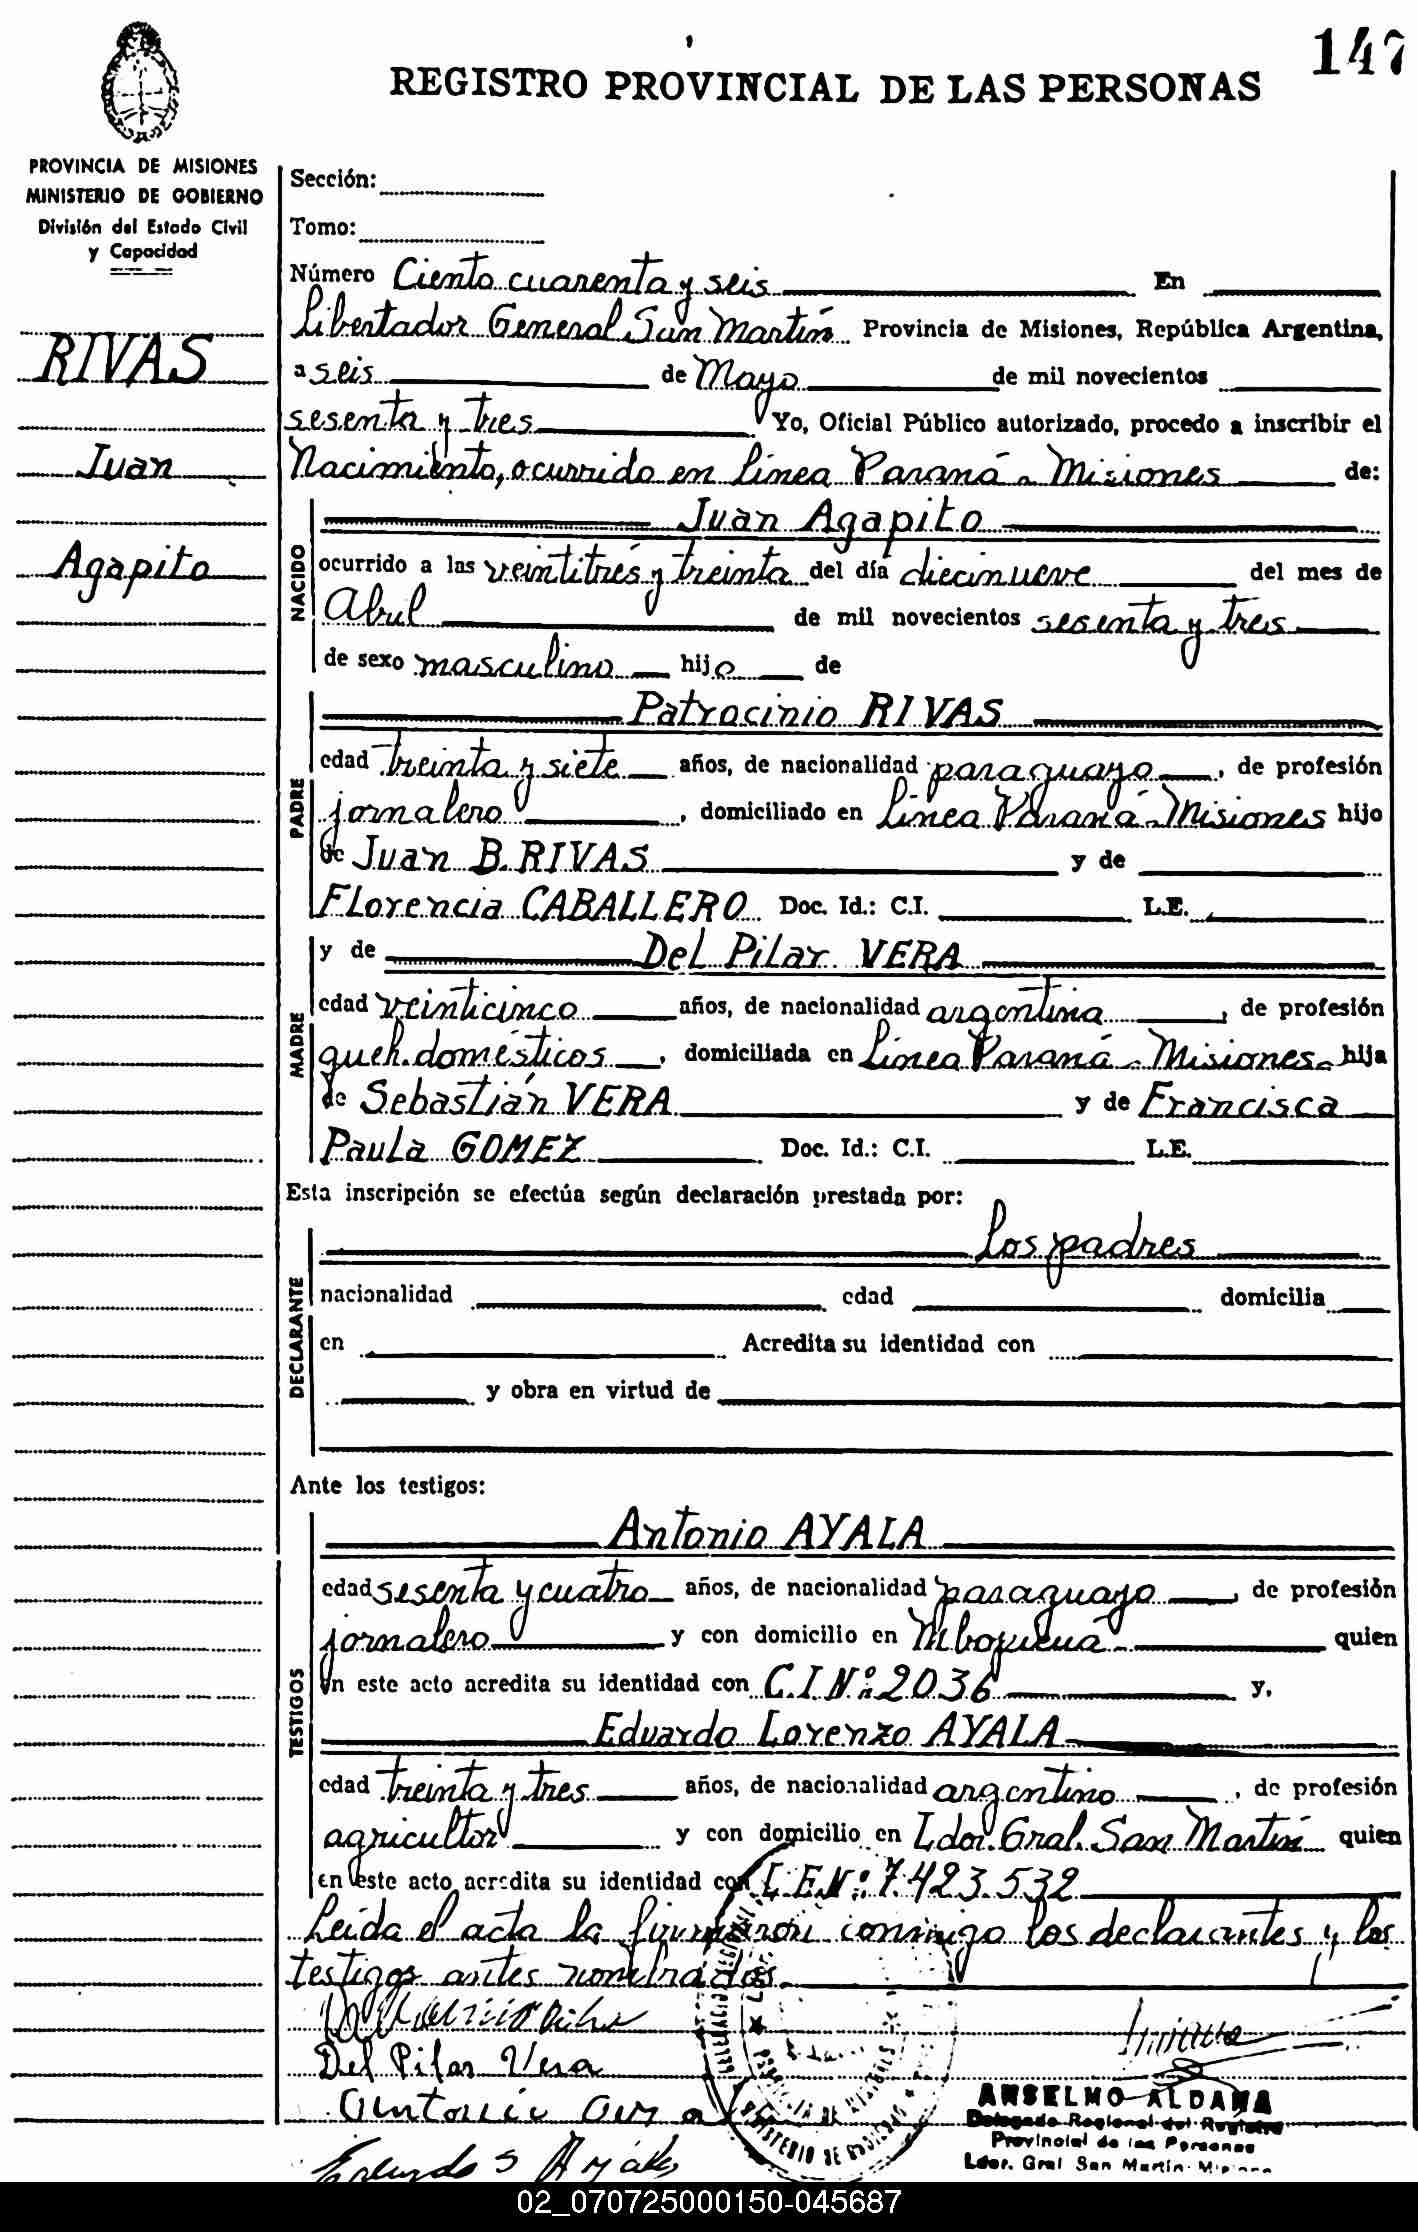 147
REGISTRO PROVINCIAL DE LAS PERSONAS
PROVINCIA DE MISIONES
MINISTERIO DE GOBIERNO
División del Estado Civil
y Capacidad
RIVAS
Juan
Agapito
Sección:
Tomo:
Número Ciento cuarenta y seis En
Libertador General San Martín Provincia de Misiones, República Argentina,
a seis de Mayo de mil novecientos
sesenta y tres Yo, Oficial Público autorizado, procedo a inscribir el
Nacimiento, ocurrido en Línea Paraná - Misiones de:
NACIDO
Juan Agapito
ocurrido a las veintitrés y treinta del día diecinueve del mes de
Abril de mil novecientos sesenta y tres
de sexo masculino hijo de
PADRE
Patrocinio RIVAS
edad treinta y siete años, de nacionalidad paraguayo, de profesión
jornalero, domiciliado en Línea Paraná - Misiones hijo
de Juan B. RIVAS y de
Florencia CABALLERO Doc. Id.: C.I. L.E.
MADRE
y de Del Pilar VERA
edad veinticinco años, de nacionalidad argentina, de profesión
queh. domésticos, domiciliada en Línea Paraná - Misiones - hija
de Sebastián VERA y de Francisca
Paula GOMEZ Doc. Id.: C.I. L.E.
Esta inscripción se efectúa según declaración prestada por:
DECLARANTE
Los padres
nacionalidad edad domicilia
en Acredita su identidad con
y obra en virtud de
Ante los testigos:
TESTIGOS
Antonio AYALA
edad sesenta y cuatro años, de nacionalidad paraguayo, de profesión
jornalero y con domicilio en quien
en este acto acredita su identidad con C.I.Nº: 2036 y,
Eduardo Lorenzo AYALA
edad treinta y tres años, de nacionalidad argentino, de profesión
agricultor y con domicilio en Ldor. Gral. San Martín quien
en este acto acredita su identidad con L.E.Nº: 7.423.532
Leida el acta la firmaron conmigo los declarantes y los
testigos antes nombrados
Del Pilar Vera
Antonio
ANSELMO ALDANA
Delegado Regional del Registro
Provincial de las Personas
Ldor. Gral San Martín - Misiones
02_070725000150-045687